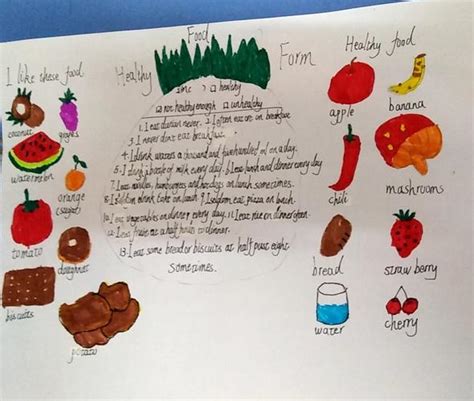 Food
Healthy Form
I like these food
Healthy food
□ healthy
□ not healthy enough □ unhealthy
1. I eat durian never. 2. I often on breakfast
3. I never don't eat breakfast.
4. I drink waters a thousand and two hundred ml on a day.
5. I drink a bottle of milk every day. 6. I eat lunch and dinner every day
7. I eat noodles, hamburgers and hotdogs on lunch sometimes.
8. I seldom drink cake on lunch. 9. I seldom eat pizza on lunch.
10. I eat vegetables on dinner every day. 11. I eat rice on dinner often.
12. I eat fruits at a half hour to dinner.
13. I eat some bread or biscuits at half past eight
sometimes.
coconut
grapes
watermelon
orange
tomato
doughnut
biscuits
potato
apple
banana
chili
mashrooms
bread
straw berry
water
cherry